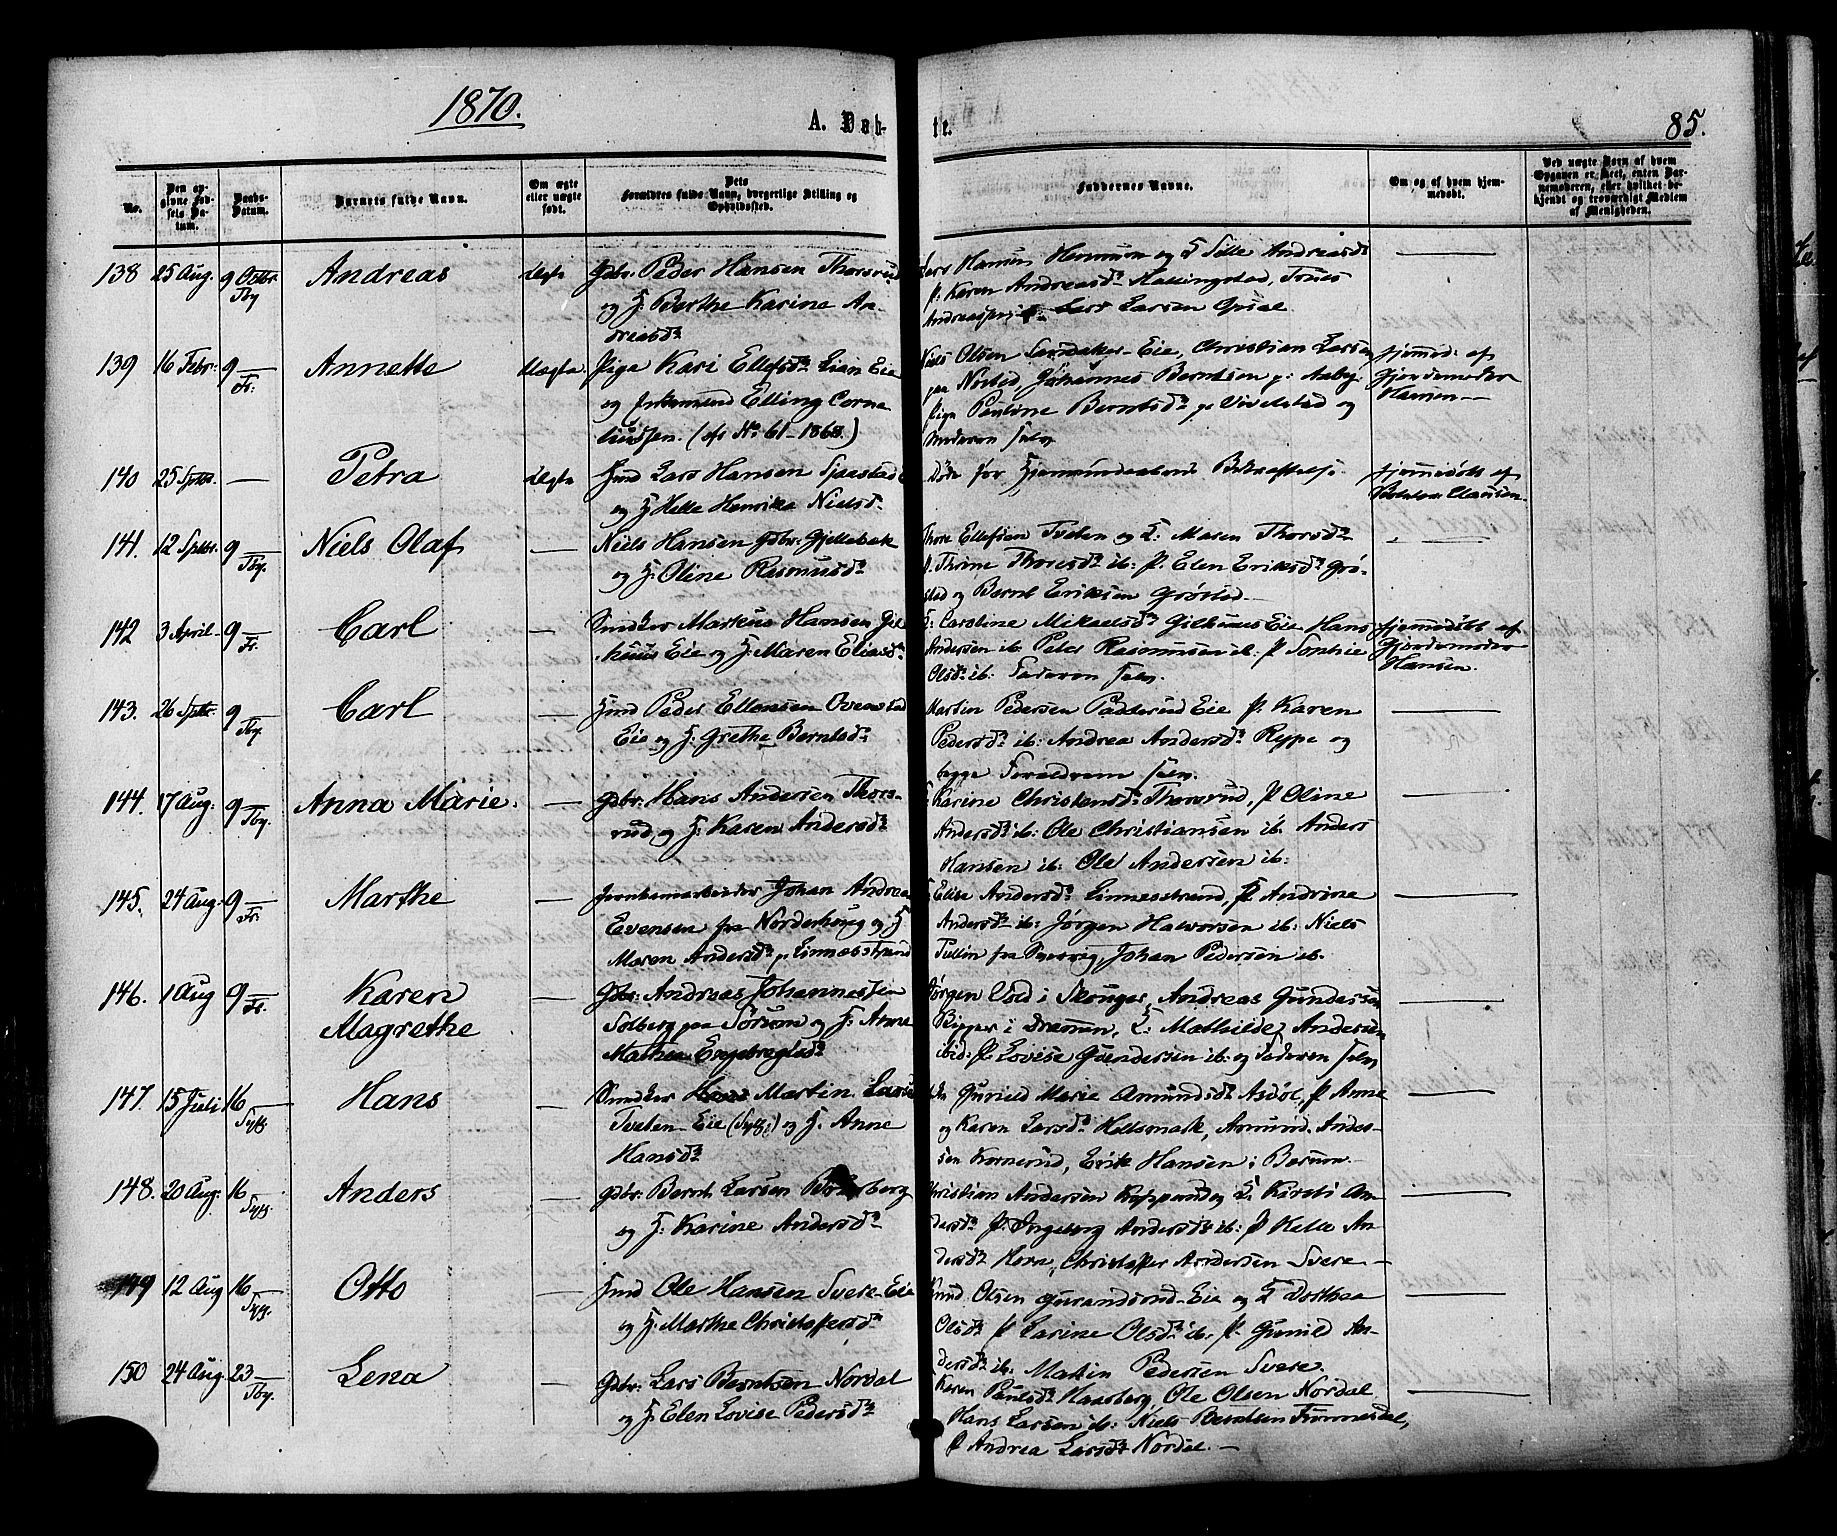 1870.
A. Døb-
te.
85.
No.
Den an-
givne Fød-
sels Da-
tum.
Daabs-
Datum.
Barnets fulde Navn.
Om ægte
eller uægte
født.
Dets
Forældres fulde Navn, borgerlige Stilling og
Opholdssted.
Faddernes Navne.
Om og af hvem hjem-
medøbt.
Ved uægte Børn af hvem
Opgaven er skeet, enten Bar-
nemoderen, eller hvilket be-
kjendt og troværdigt Medlem
af Menigheden.
138 25 Aug. 9 Octbr Tby Andreas ægte Gdbr. Peder Hansen Thorsrud
og H. Berthe Karine An-
dreasdr
Lars Hansen og H Sille Andreasdr
P. Karen Andreasdr Hallingstad, Tønes
Andreassen Lars Larsen Gusal
139 16 Febr: 9 Fr. Annette uægte Pige Kari Ellefsdr Lian Eie
og Elling Corne
liussen. (cfr No. 61-1868.)
Niels Olsen Sandaker-Eie, Christian Larsen
paa Nøsted, Johannes Berntsen p: Aaby,
Pige Pauline Berntsdr p. Vivelstad og
Moderen selv
hjemmed: af
Gjordemoder
Hansen
140 25 Septbr. — Petra ægte Hmd Lars Hansen Sjaastad
og H Helle Henrikke Nielsdr
Døde før Bekræftelse.
hjemmedøbt af
Clausen.
141. 12 Septbr. 9 Tby. Niels Olaf — Niels Hansen Gdbr. Gjellebæk
og H: Oline Rasmusdr
Thore Ellefsen Tveten og H: Maren Thorsdr
P. Thrine Thoresdr ib: P. Elen Eriksdr Grø-
stad og Bernt Eriksen Grøstad
142 3 April 9 Fr. Carl — Snedker Markus Hansen Gil
huus Eie og H: Maren Eliasdr
H: Caroline Mikaelsdr Gilhuus Eie Hans
Andersen ib. Peter Rasmussen ib. P Sophie
Olsdr ib. Faderen selv.
hjemmedøbt af
Gjordemoder
Hansen.
143. 26 Septbr. 9 Tby. Carl — Hmd Peder Ellensen Ovenstad
Eie og H. Grethe Berntsdr
Martin Pedersen Padderud Eie P. Karen
Pedersdr ib: Andrea Andersdr Rype og
begge Forældrene selv.
144. 17 Aug: 9 Tby. Anna Marie. — Gdbr: Hans Andersen Thors-
rud og H: Karen Andersdr
H: Karine Christensdr Thorsrud, P Oline
Andersdr ib: Ole Christiansen ib. Anders
Hansen ib: Ole Andersen ib:
145. 24 Aug: 9 Fr. Marthe — Jernbanearbeider Johan Andrea
Evensen fra Norderhoug og H
Maren Andersdr p. Linnesstrand
H: Elise Andersdr Linnesstrand, P Andrine
Andersdr ib: Jørgen Halvorsen ib. Niels
Tullin fra Snarøen, Johan Pedersen ib.
146. 1 Aug 9 Fr. Karen
Magrethe — Gdbr: Andreas Johannessen
Solberg paa Sørum og H. Anne
Mathea Engebregtsdr
Jørgen Vold i Skouger, Andreas Gundersen
Bigger i Drammen, H: Mathilde Andersen
ibid: P. Lovise Gundersen ib: og Faderen selv
147. 15 Juli 16 Sylg Hans — Snedker Hans Martin Larse
Tveten Eie (Sylg) og H. Anne
Hansdr
Gunild Marie Amundsdr Asdøl, P Anne
og Karen Larsdr Hellsmark, Amund Ander-
sen Kornerud, Erik Hansen i Berum
148. 20 Aug: 16 Sylg. Anders — Gdbr: Bernt Larsen
og H. Karine Andersdr
Christian Andersen og H. Kirsti An-
dersdr P. Ingeborg Andersdr ib: P Helle An-
dersdr Horn, Christoffer Andersen Svere
149 12 Aug 16 Sylg. Otto — Hmd Ole Hansen Svere-Eie
og H. Marthe Christoffersdr
Knud Olsen Gurandsrud-Eie og H Dorthea
Olsdr P Larine Olsdr ib: P. Gunild An-
dersdr ib: Martin Pedersen Svere.
150 24 Aug 23 Tby. Lena — Gdbr: Lars Berntsen Nordal
og H. Elen Lovise Pedersdr
Karen Paulsdr Haarberg, Ole Olsen Nordal
Hans Larsen ib: Niels Berntsen Tømmesdal,
P Andrea Larsdr Nordal.